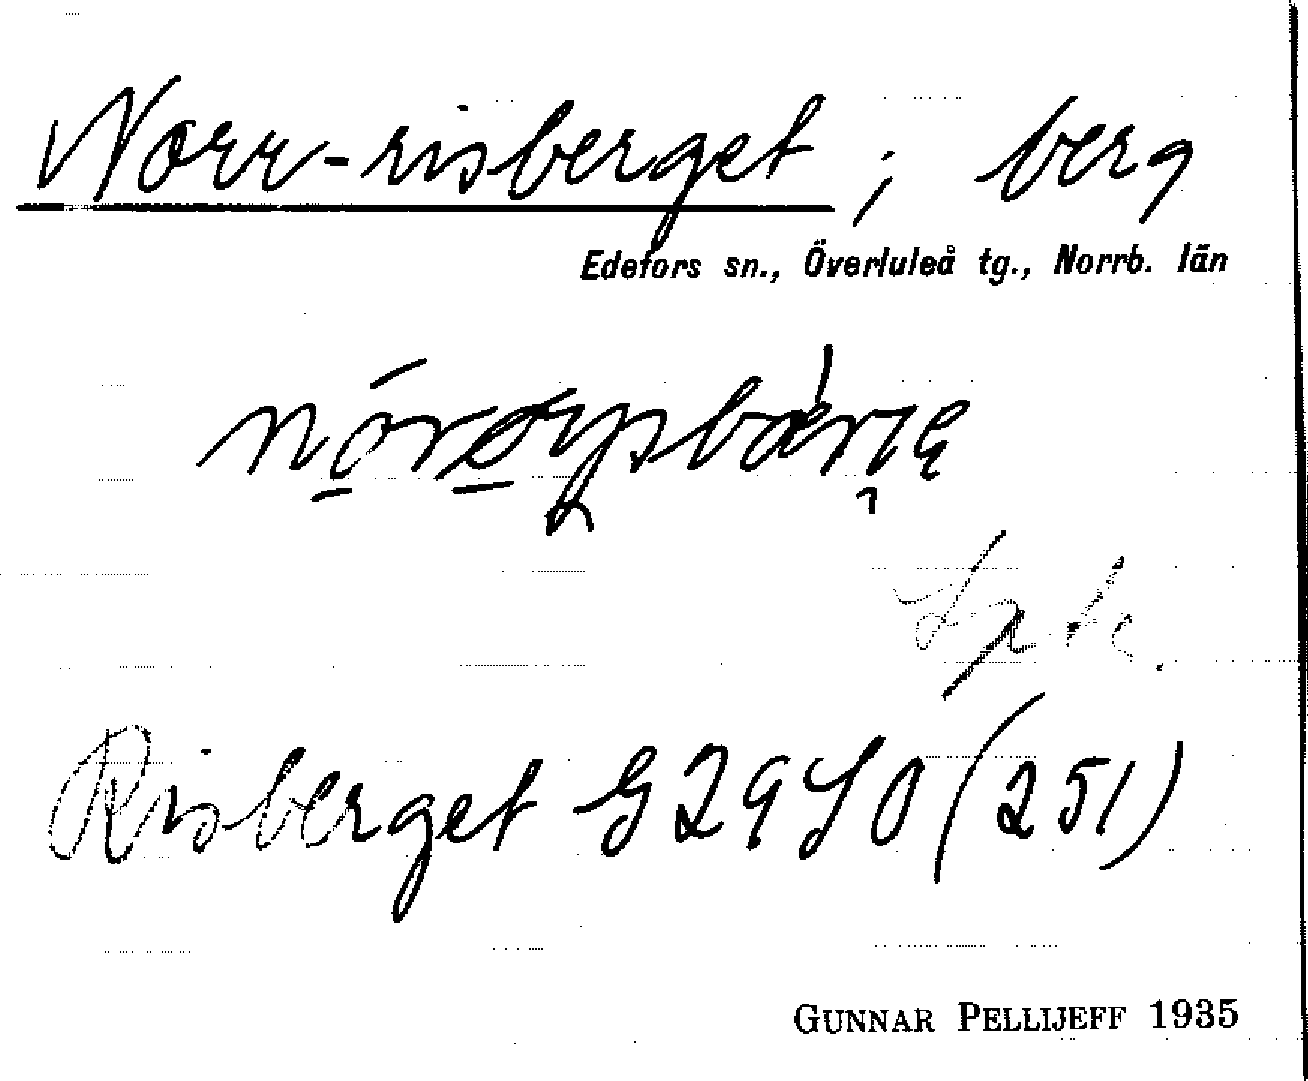 Norr-risberget ; berg
Edefors sn., Överluleå tg., Norrb. län
Risberget G29 SO (251)
GUNNAR PELLIJEFF 1935